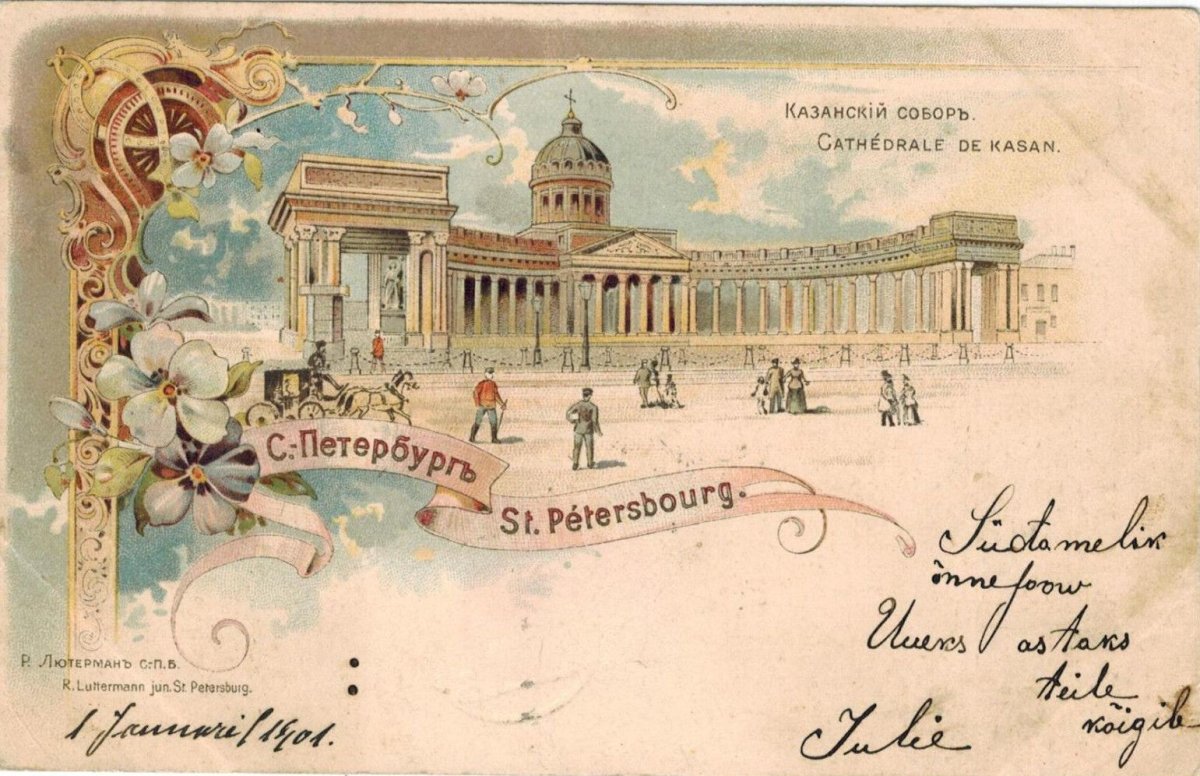 Казанскій соборъ.
Cathédrale de Kasan.
С.-Петербургъ
St. Pétersbourg.
Südamelik
õnne soow
Uueks astaks
teile
kõigile
Julie
Р. Лютерманъ С.-П.Б.
R. Luttermann jun. St. Petersburg.
1 Januaril 1901.